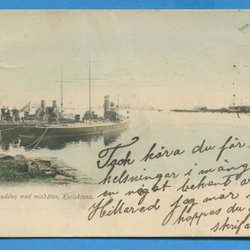 udden med minbåtar, Karlskrona.
Tack kära du för
helsningar i mång
en något bekant a
Hillared jag mår
hoppas du
skrif